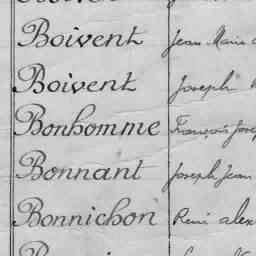 Boivent Jean Marie
Boivent Joseph
Bonhomme François Jose
Bonnant Joseph Jean
Bonnichon René alex